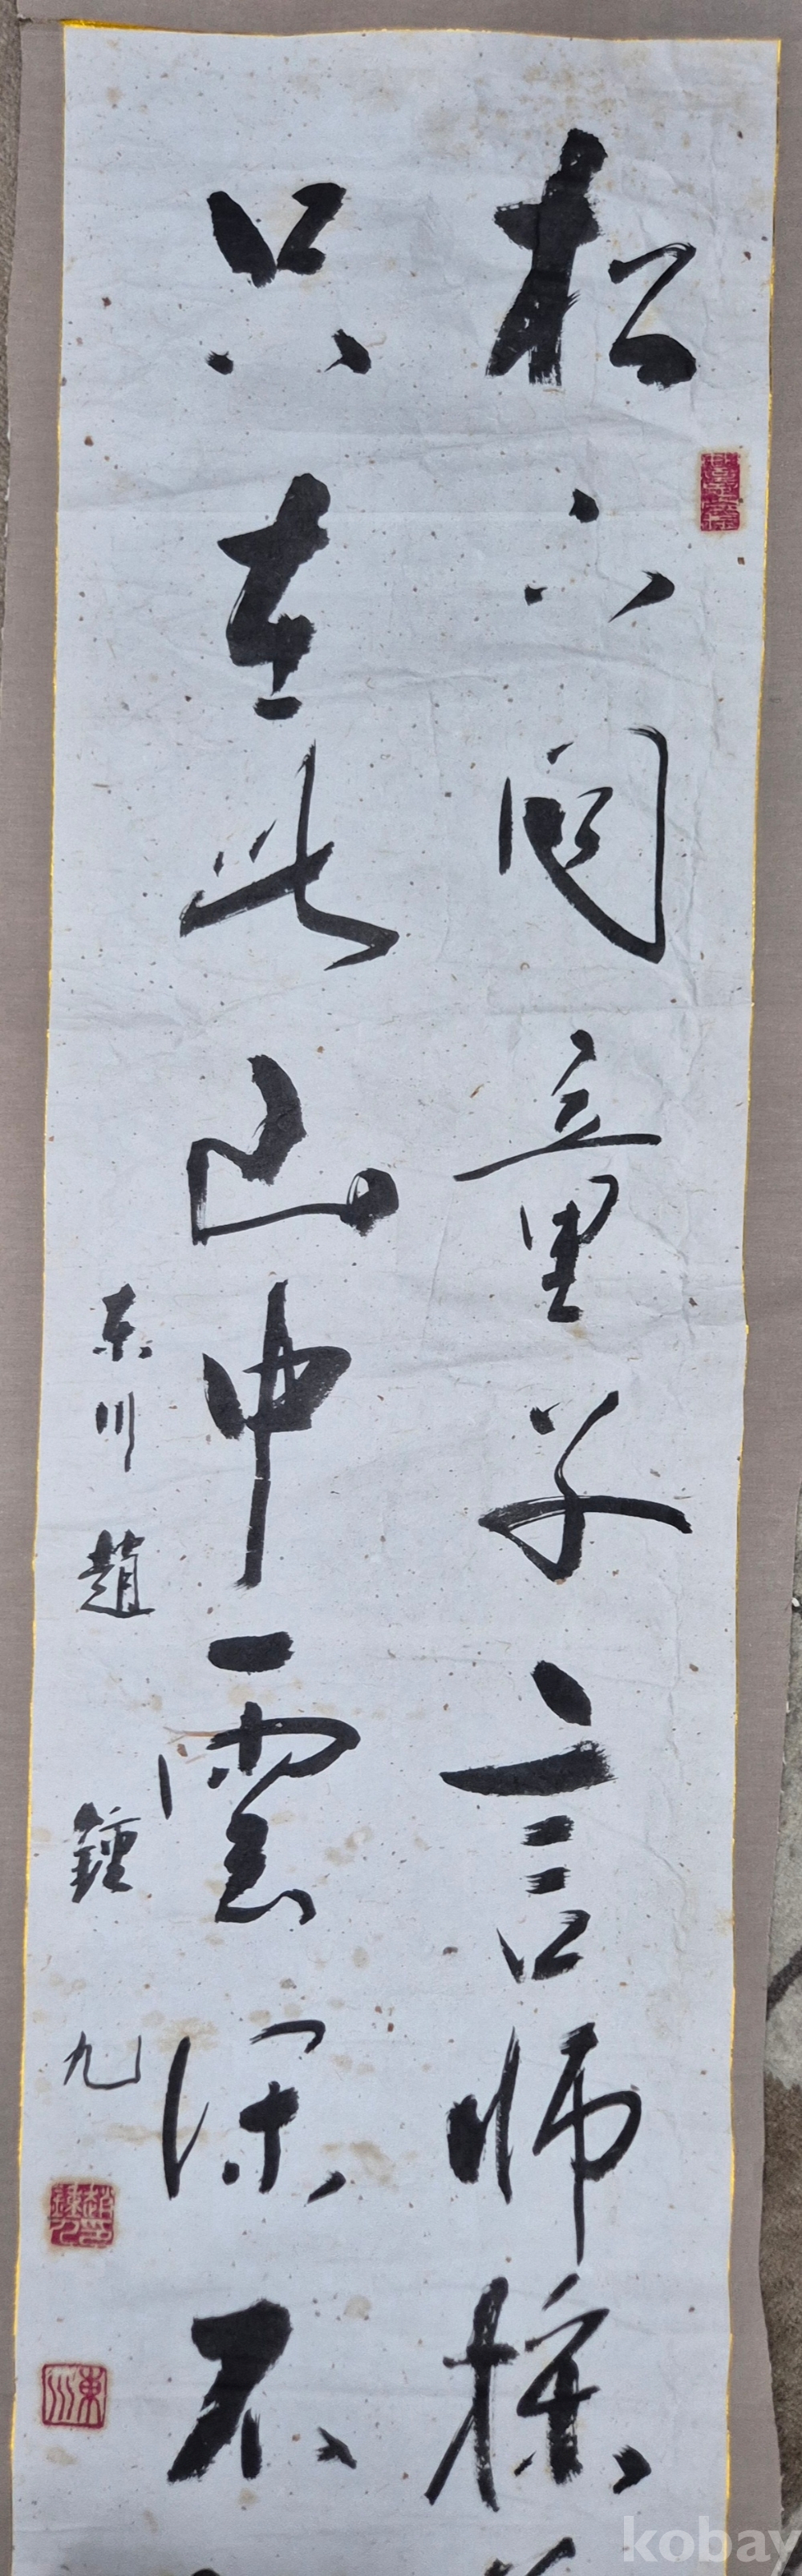 松下問童子言師採
只在此山中雲深不
東川 趙鍾九
東川
kobay